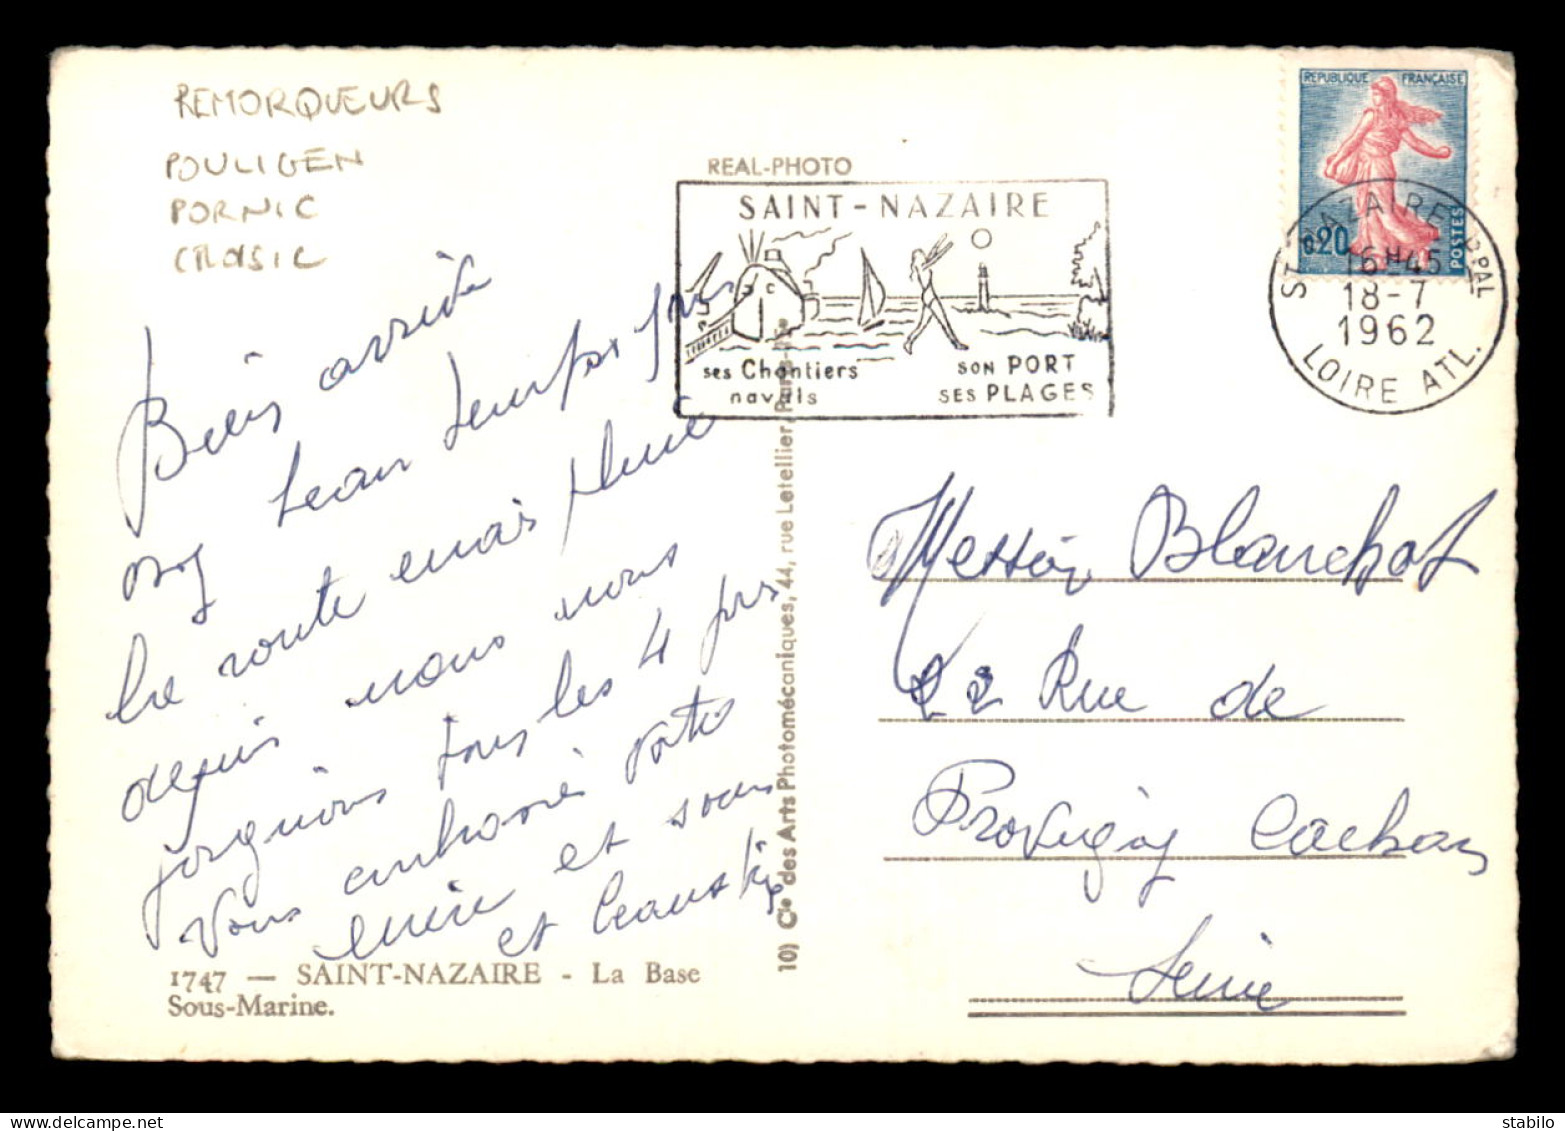 REMORQUEURS
POULIGEN
PORNIC
CROISIC
REAL-PHOTO
SAINT-NAZAIRE
ses Chantiers
navals
SON PORT
SES PLAGES
REPUBLIQUE FRANÇAISE
0,20
POSTES
ST NAZAIRE PPAL
16H45
18-7
1962
LOIRE ATL.
Bien arrivé
beau temps sur
la route mais pluie
depuis nous nous
tous les 4 pour
Vous embrasser
et
et
1747 — SAINT-NAZAIRE - La Base
Sous-Marine.
10) Cie des Arts Photomécaniques, 44, rue Letellier, Paris-15e
Blanchot
22 Rue de
Provigny Cachan
Seine
delcampe.net
stabilo